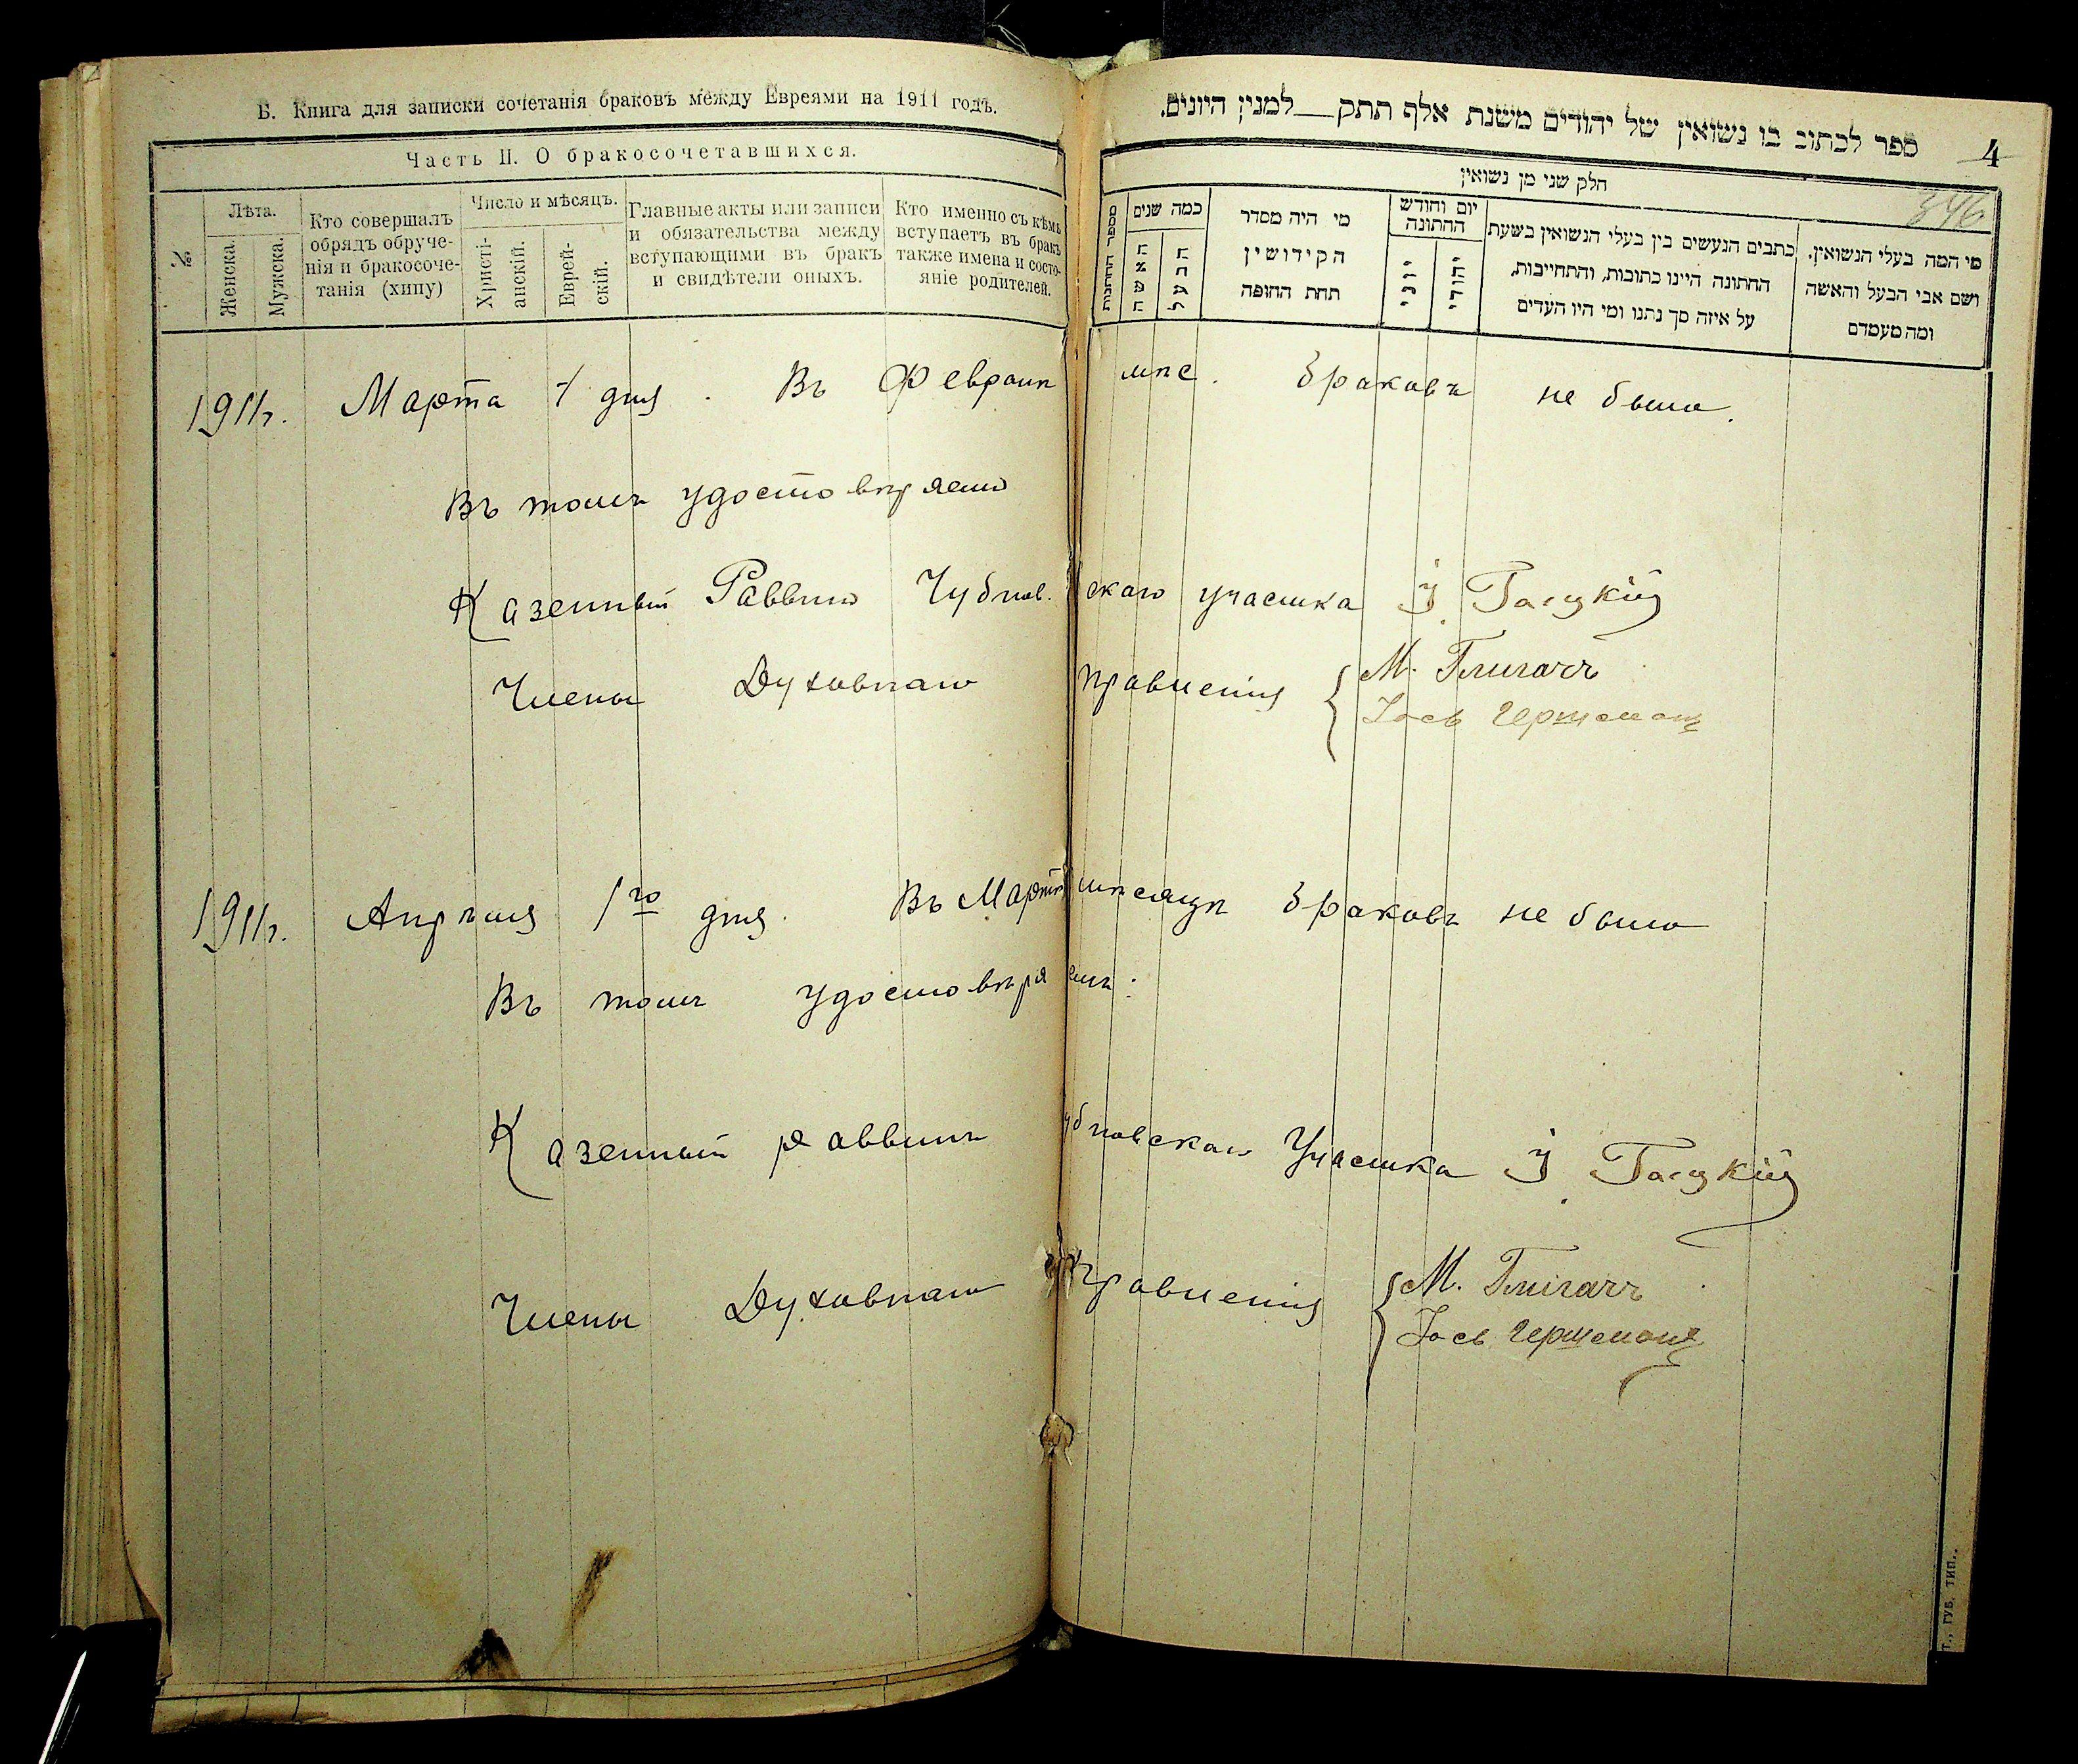 Б. Книга для записки сочетанія браковъ между Евреями на 1911 годъ.
Часть II. О бракосочетавшихся.
№
Лѣта.
Женска.
Мужска.
Кто совершалъ
обрядъ обруче-
нія и бракосоче-
танія (хипу)
Число и мѣсяцъ.
Христі-
анскій.
Еврей-
скій.
Главные акты или записи
и обязательства между
вступающими въ бракъ
и свидѣтели оныхъ.
Кто именно съ кѣмъ
вступаетъ въ бракъ
также имена и состо-
яніе родителей.
ספר לכתוב בו נשואין של יהודים משנת אלף תתק__למנין היונים.
4
346
חלק שני מן נשואין
מספר החתונות
כמה שנים
האשה
הבעל
מי היה מסדר
הקידושין
תחת החופה
יום וחודש
החתונה
יוני
יהודי
כתבים הנעשים בין בעלי הנשואין בשעת
החתונה היינו כתובות, והתחייבות,
על איזה סך נתנו ומי היו העדים
מי המה בעלי הנשואין,
ושם אבי הבעל והאשה
ומה מעמדם
1911г. Марта 1 дня. Въ Февралѣ мѣс. браковъ не было.
Въ томъ удостовѣряемъ
Казенный Раввинъ Чубнов.скаго участка І.
Члены Духовнаго Правленія { М. Глигачъ
Іось Гершеманъ
1911г. Апрѣля 1го дня. Въ Мартѣ мѣсяцѣ браковъ не было
Въ томъ удостовѣряемъ:
Казенный раввинъ Чубновскаго Участка І.
Члены Духовнаго Правленія { М. Глигачъ
Іось Гершеманъ
Т., ГУБ. ТИП..